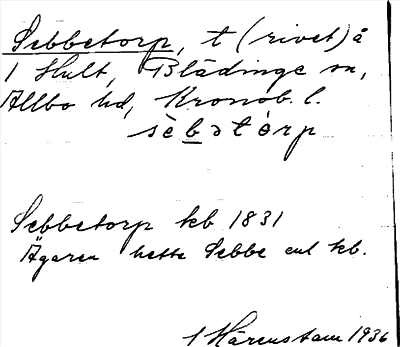 Sebbetorp, t (rivet) å
1 Hult, Blädinge sn,
Allbo hd, Kronob. l.
sèbɘtórp
Sebbetorp kb 1831
Ägaren hette Sebbe enl kb.
1 Härenstam 1936